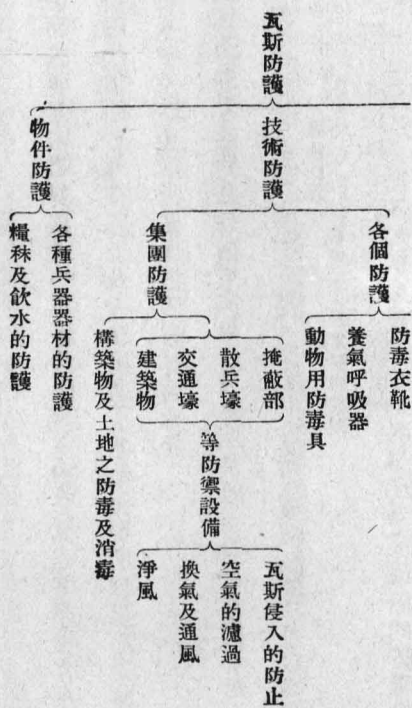 瓦斯防護
技術防護
各個防護
防毒衣靴
養氣呼吸器
動物用防毒具
集團防護
掩蔽部
散兵壕
交通壕
建築物
等防禦設備
瓦斯侵入的防止
空氣的濾過
換氣及通風
淨風
構築物及土地之防毒及消毒
物件防護
各種兵器器材的防護
糧秣及飲水的防護